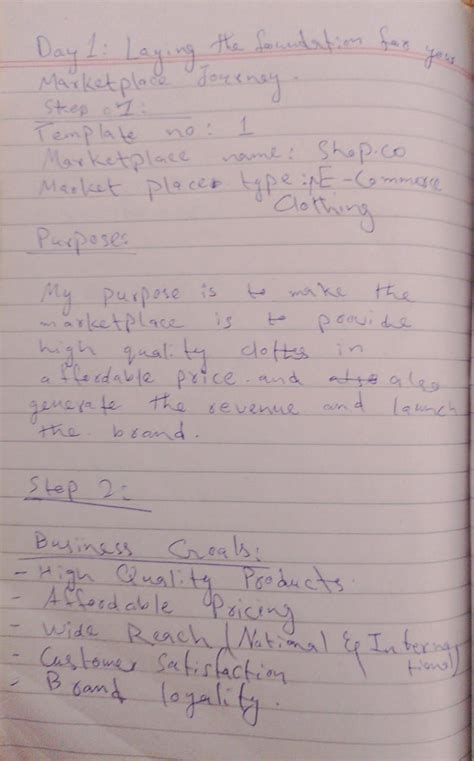 Day 1: Laying the foundation for your
Marketplace Journey.
Step 01:
Template no: 1
Marketplace name: Shop.co
Market place type: E-Commerce
Clothing
Purpose:
My purpose is to make the
marketplace is to provide
high quality clothes in
affordable price. and also
generate the revenue and launch
the brand.
Step 2:
Business Goals:
- High Quality Products
- Affordable Pricing
- Wide Reach (National & Interna
tional)
- Customer Satisfaction
- Brand loyality.